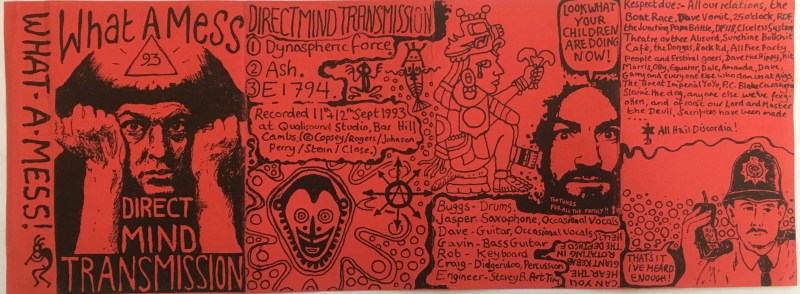 WHAT·A·MESS!
What A Mess
93
DIRECT
MIND
TRANSMISSION
DIRECT MIND TRANSMISSION
① Dynaspheric force.
② Ash.
③ E1794.
Recorded 11th + 12th Sept 1993
at Qualisound Studio, Bar Hill
Cambs (© Copsey/Rogers/Johnson
Perry/Stein/Close.)
LOOK WHAT
YOUR
CHILDREN
ARE DOING
NOW!
FUN TUNES
FOR ALL THE FAMILY!!
Buggs - Drums.
Jasper - Saxophone, Occasional Vocals
Dave - Guitar, Occasional Vocals
Gavin - Bass Guitar
Rob - Keyboard
Craig - Didgeridoo, Percussion
Engineer - Stevey B. Art Tim
CAN YOU
HEAR THE
GIANT KEBAB
ROTATING IN
HELL?
Respect due:- All our relations, the
Boat Race, Dave Vomit, 25 o'clock, RDF,
the Junction, Papa Brittle,
Theatre of the Absurd, Sunshine Bullshit
Café, the Dongas, Rock Rd, All Free Party
people and Festival goers, Dave the Hippy,
Morris, Olly, Equator, Dale, Amanda, Dave,
Gary and everyone else who
The Great Imperial Yo Yo, P.C. Blakelock
the dog, anyone else we've forg-
otten, and of cos't our Lord and Master
the Devil, Sacrifices have been made
....
All Hail Discordia!
THAT'S IT
I'VE HEARD
ENOUGH!